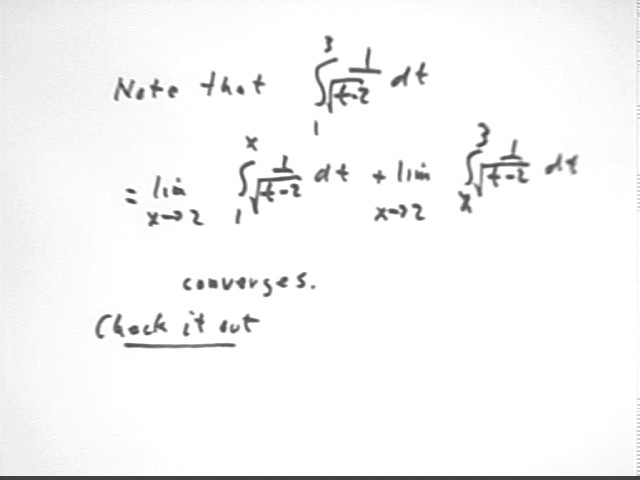 Note that ∫₁³ 1/√(t-2) dt
= lim x→2 ∫₁ˣ 1/√(t-2) dt + lim x→2 ∫ₓ³ 1/√(t-2) dt
converges.
Check it out